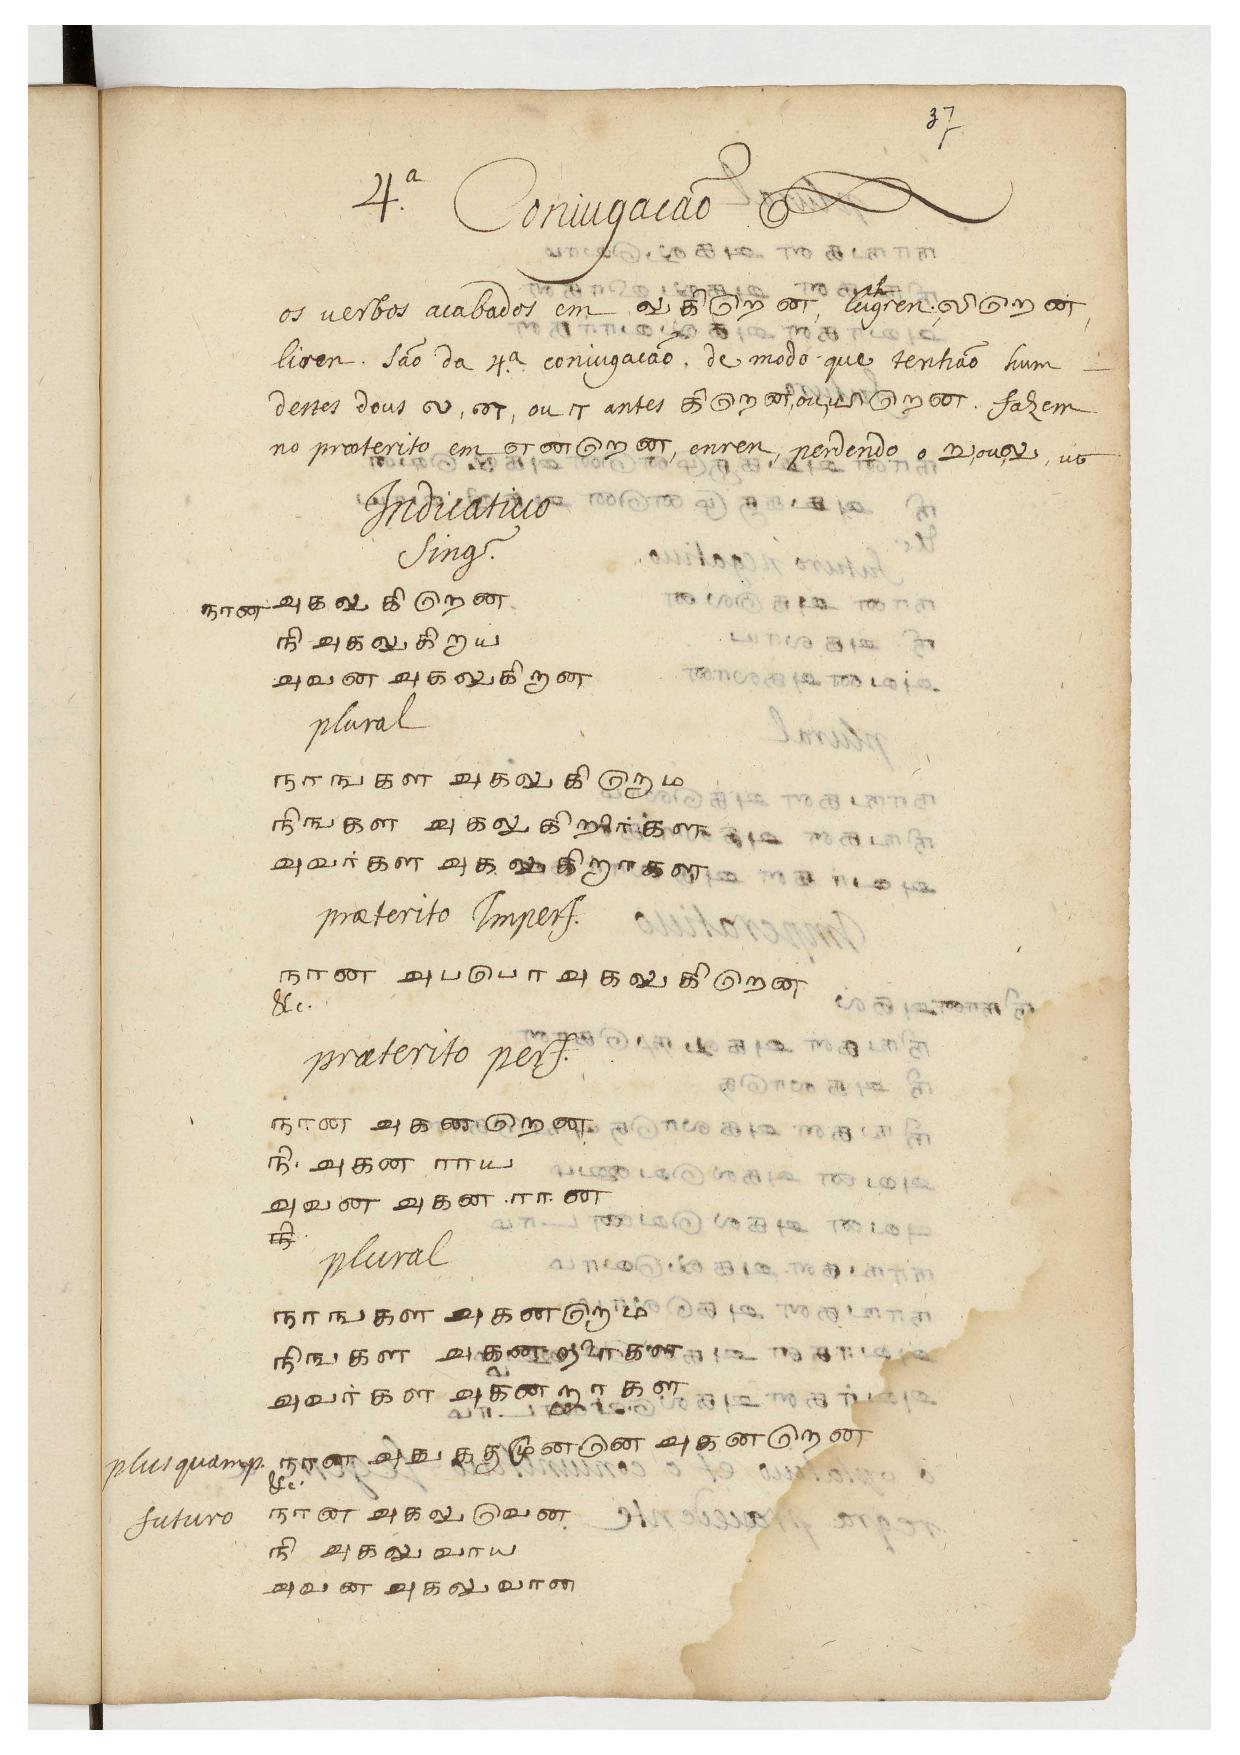 37
4.ª Coniugacaõ
os uerbos acabados em லுகிறென, lugren. லிறென,
liren. saõ da 4.ª coniugacaõ. de modo que tenhaõ hum
destes dous ல, ன, ou ா antes கிறென, ou, . fazem
no præterito em னறென, enren, perdendo o று, ou, லு, ut
Indicatiuo
Singr.
நான அகலுகிறென
நி அகலுகிறய
அவன அகலுகிறன
plural
நாஙகள அகலுகிறெும
நிஙகள அகலுகிறிர்கள
அவர்கள அகலுகிறாகள
præterito Imperf.
நான அபபொ அகலுகிறென
&c.
præterito perf.
நான அகனறென
நி அகன ராய
அவன அகன ரான
plural
நாஙகள அகனறெும
நிஙகள
அவர்கள அகனறாகள
plusquamp. நான அகனறென
&c.
futuro நான அகலுவென
நி அகலுவாய
அவன அகலுவான